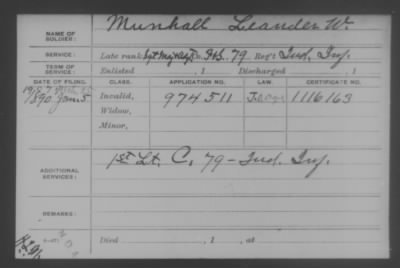 NAME OF SOLDIER: Munhall Leander W.
SERVICE: Late rank Sgt Maj Co. F&S. 79 Reg't Ind. Inf.
TERM OF SERVICE: Enlisted , 1 Discharged , 1
DATE OF FILING. CLASS. APPLICATION NO. LAW. CERTIFICATE NO.
1890 Jan 5 Invalid, 974511 1116163
Widow,
Minor,
ADDITIONAL SERVICES: 1st Lt. C, 79 - Ind. Inf.
REMARKS:
Died , 1 , at